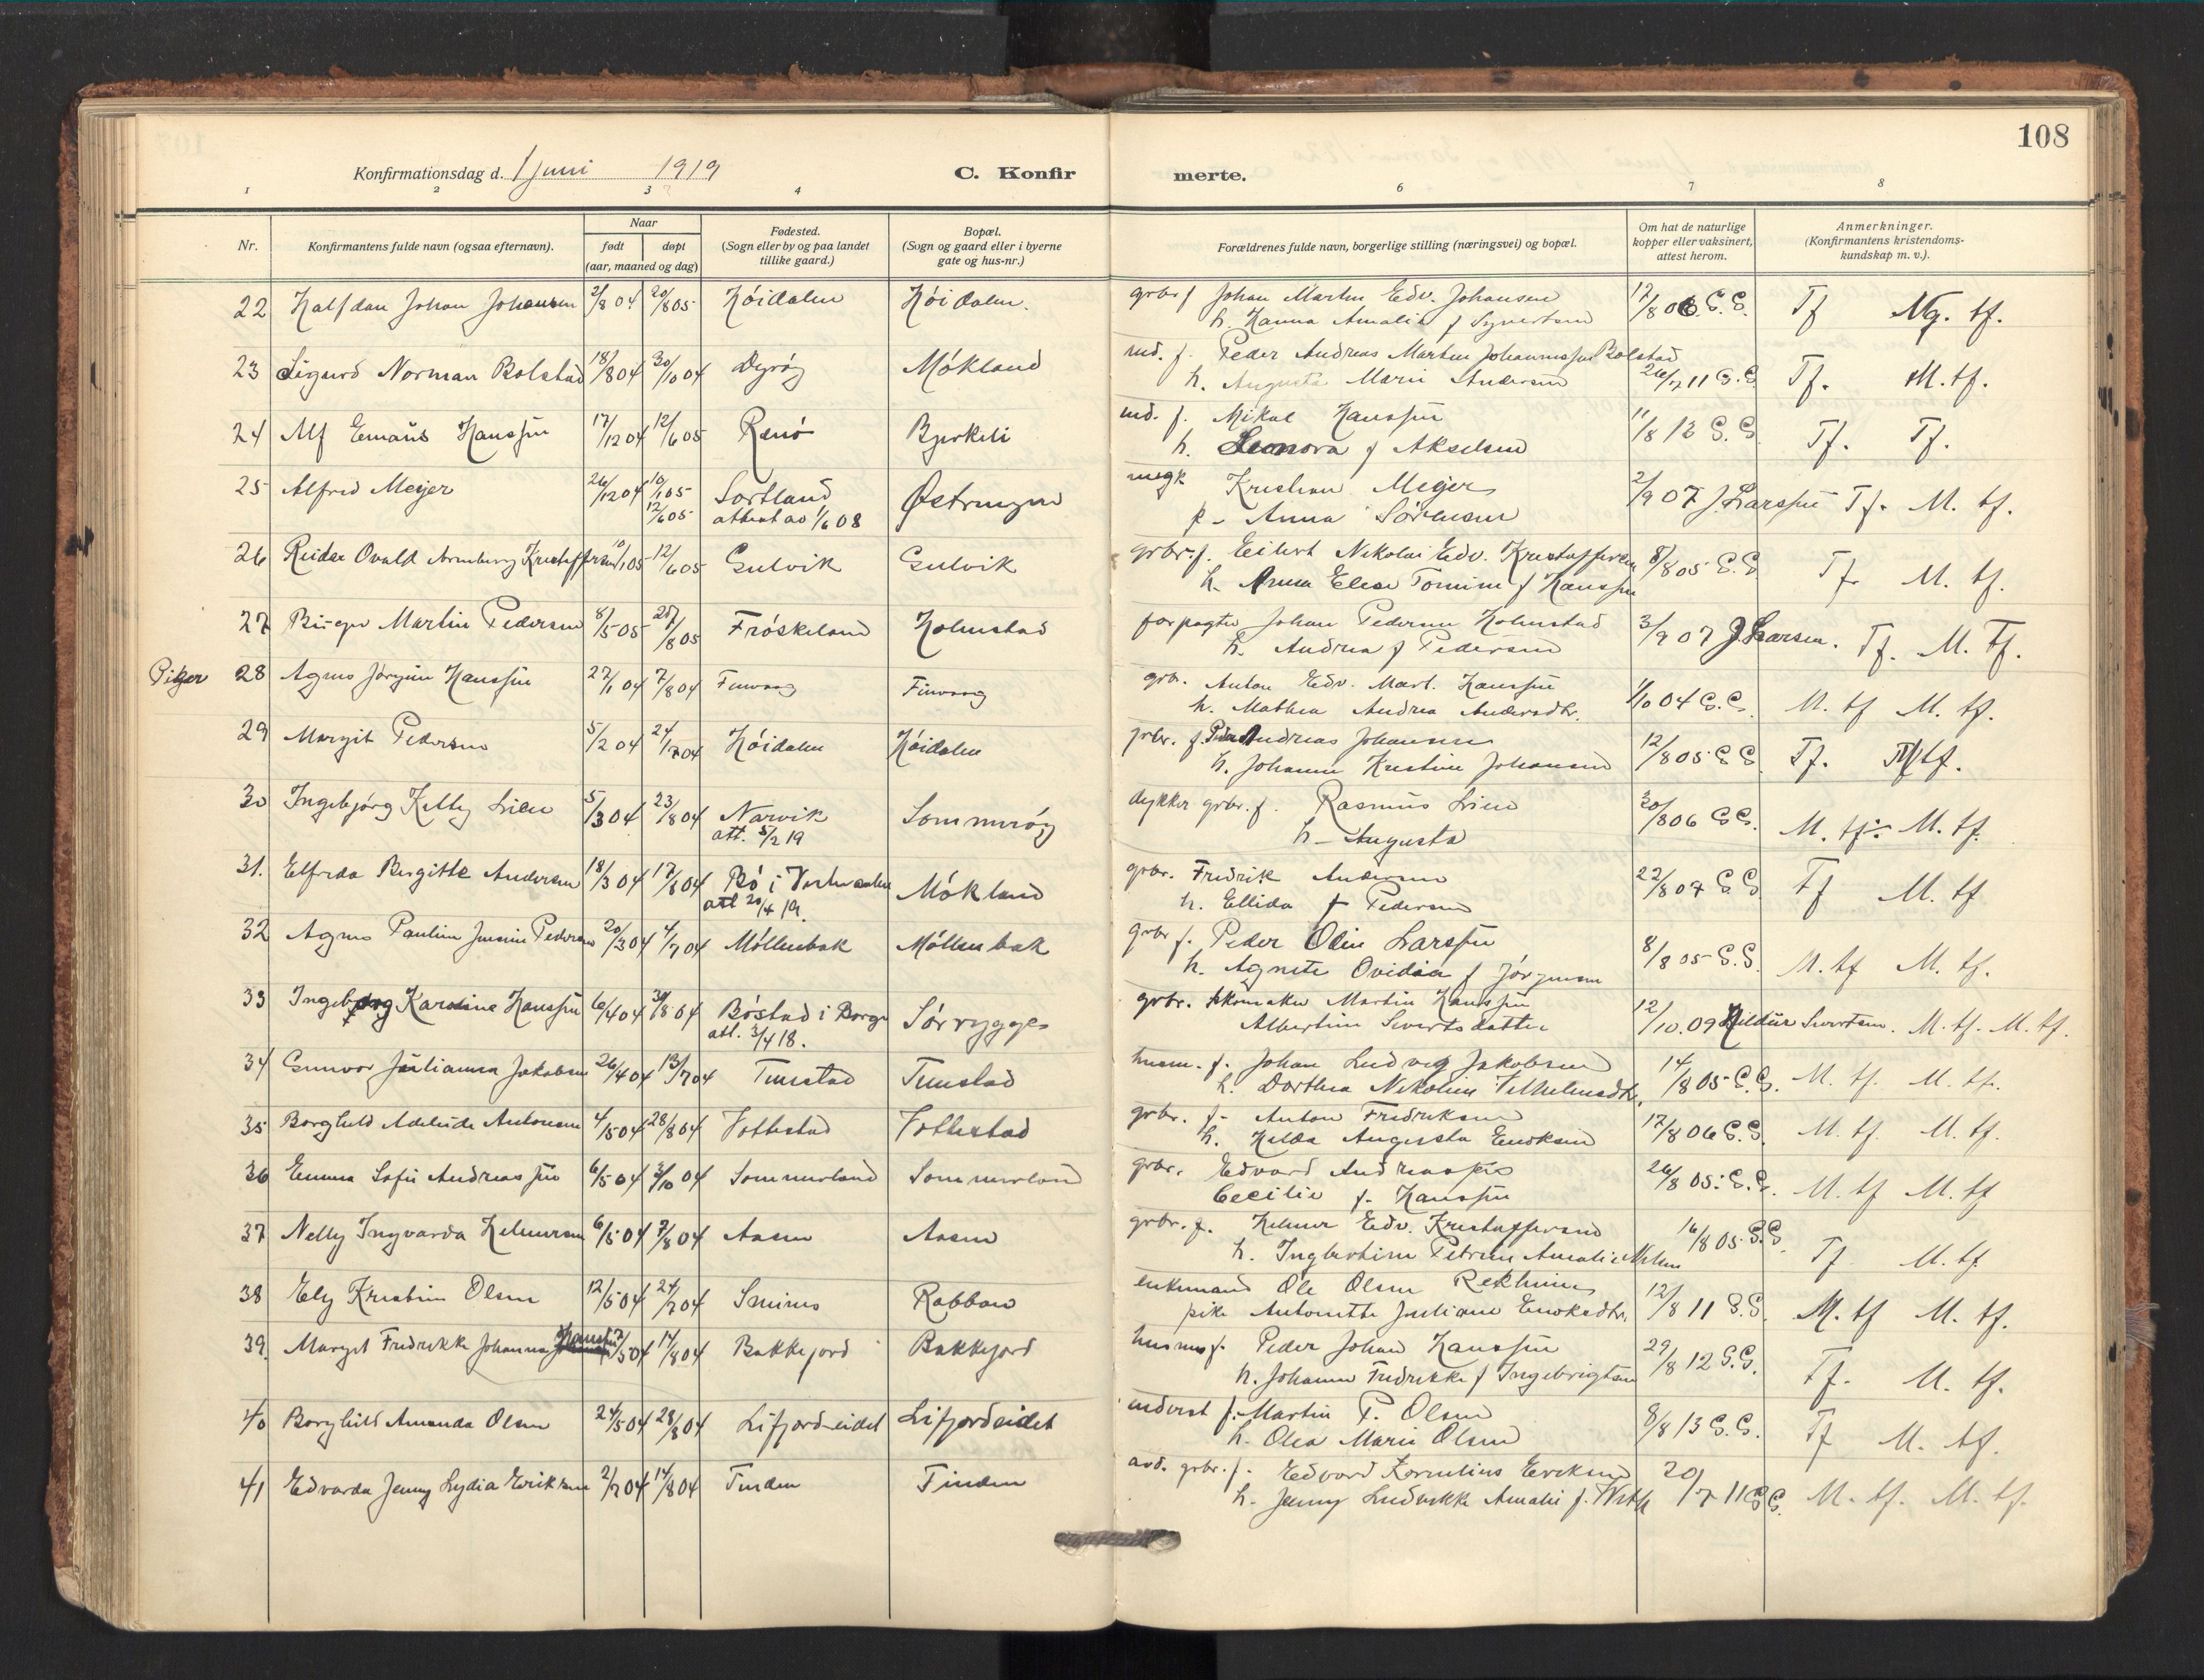 108
Konfirmationsdag d. 1 juni 1919 C. Konfirmerte.
1 2 3 4 6 7 8
Nr. Konfirmantens fulde navn (ogsaa efternavn). Naar født døpt (aar, maaned og dag) Fødested. (Sogn eller by og paa landet tillike gaard.) Bopæl. (Sogn og gaard eller i byerne gate og hus-nr.) Forældrenes fulde navn, borgerlige stilling (næringsvei) og bopæl. Om hat de naturlige kopper eller vaksinert, attest herom. Anmerkninger. (Konfirmantens kristendomskundskap m. v.).
22 Halfdan Johan Johansen 2/8 04 20/8 05 Høidalen Høidalen. grbr f Johan Martin Edv. Johansen 12/8 06 G. G. Tf Mg. tf.
h. Hanna Amalie f Syvertsen
23 Sigurd Norman Bolstad 18/8 04 30/10 04 Dyrøy Møkland ind. f. Peder Andreas Martin Johannessen Bolstad
h. Augusta Marie Andersen 26/7 11 G. G. Tf. M. tf.
24 Alf Emaus Hanssen 17/12 04 12/6 05 Renø Bjerkeli ind. f. Mikal Hanssen 11/8 13 G. G. Tf. Tf.
h. Leonora f Akselsen
25 Alfred Meyer 26/12 04 10/1 05 12/6 05 Sortland attest av 1/6 08 Østringen Kristian Meyer 2/9 07 J. Larssen Tf. M. tf.
p - Anna Sørensen
26 Reidar Ovald Kristoffersen 10/1 05 12/6 05 Gulvik Gulvik grbr. f. Eilert Nikolai Edv. Kristoffersen 8/8 05 G. G. Tf. M. tf.
h. Anna Elise Tomine f Hanssen
27 Birger Martin Pedersen 8/5 05 20/8 05 Frøskeland Holmstad forpagter Johan Pedersen Holmstad 3/9 07 J. Larsen. Tf. M. Tf.
h. Andrea f Pedersen
Piker 28 Agnes Jørgine Hanssen 27/1 04 7/8 04 Finvaag Finvaag grbr. Anton Edv. Mart. Hanssen 1/10 04 G. G. M. tf M. tf.
h. Mathea Andrea Andersdtr.
29 Margit Pedersen 5/2 04 24/7 04 Høidalen Høidalen grbr. f. Peder Andreas Johansen 12/8 05 G G. Tf. M tf.
h. Johanne Kristine Johansen
30 Ingebjørg Kelly Lien 5/3 04 23/8 04 Narvik att. 5/2 19 Sommerøy dykker grbr. f. Rasmus Lien 30/8 06 G G. M. tf. M. tf.
h - Augusta
31. Elfrida Birgitte Andersen 18/3 04 17/8 04 Bø i Vesteraalen att 20/4 19. Møkland grbr. Fredrik Andersen 22/8 07 G G Tf M. tf
h. Ellida f Pedersen
32 Agnes Pauline Jensine Pedersen 20/3 04 4/7 04 Møllenbak Møllenbak grbr f. Peder Olin Larssen 8/8 05 G. G. M. tf M. tf.
h. Agnete Ovidia f Jørgensen
33 Ingebjørg Karoline Hanssen 6/4 04 31/8 04 Bøstad i Borge att. 3/4 18. Sørrygge grbr. skomaker Martin Hanssen 12/10. 09 Hildur Sivertsen. M. tf. M. tf.
Albertine Sivertsdatter
34 Gunvor Julianna Jakobsen 26/4 04 13/7 04 Tunstad Tunstad husm. f. Johan Ludvig Jakobsen 14/8 05 G. G. M. tf. M. tf.
h. Dorthea Nikoline Vilhelmsdtr.
35 Borghild Adeleide Antonsen 4/5 04 28/8 04 Vottestad Vottestad grbr. f - Anton Fredriksen 17/8 06 G. G. M. tf. M. tf.
h. Hilda Augusta Enoksen
36 Emma Sofie Andreassen 6/5 04 3/10 04 Sommerland Sommerland grbr. Edvard Andreassen 26/8 05. G. G. M. tf M. tf
Cecilie f. Hanssen
37 Nelly Ingvarda Helmersen 6/5 04 7/8 04 Aasen Aasen grbr. f. Helmer Edv. Kristoffersen 16/8 05 G. G. Tf. M. tf.
h. Ingbertine Petrine Amalie Nilsen
38 Ely Kristine Olsen 12/5 04 24/7 04 Smines Rabban enkemand Ole Olsen Rekkines 12/8 11 G. G. M. tf M. tf.
pike Antonette Juliane Enoksdtr.
39. Margit Fredrikke Johanna Hanssen 12/5 04 14/8 04 Bakkejord Bakkejord husm f. Peder Johan Hanssen 29/8 12 G. G. Tf. M. tf.
h. Johanne Fredrikke f Ingebrigtsen
40 Borghild Amanda Olsen 24/5 04 28/8 04 Lifjordeidet Lifjordeidet inderst f. Martin P. Olsen 8/8 13 G. G. Tf M. tf.
h. Olea Marie Olsen
41 Edvarda Jenny Lydia Eriksen 2/7 04 14/8 04 Tinden Tinden avd. grbr. f. Edvard Kornelius Eriksen 20/7 11 G G. M. tf. M. tf.
h. Jenny Ludvikke Amalie f.